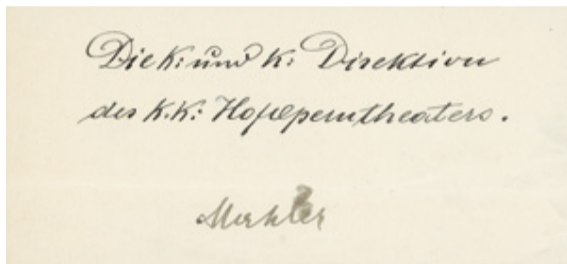 Die k: und k: Direktion
des k.k: Hofoperntheaters.
Mahler